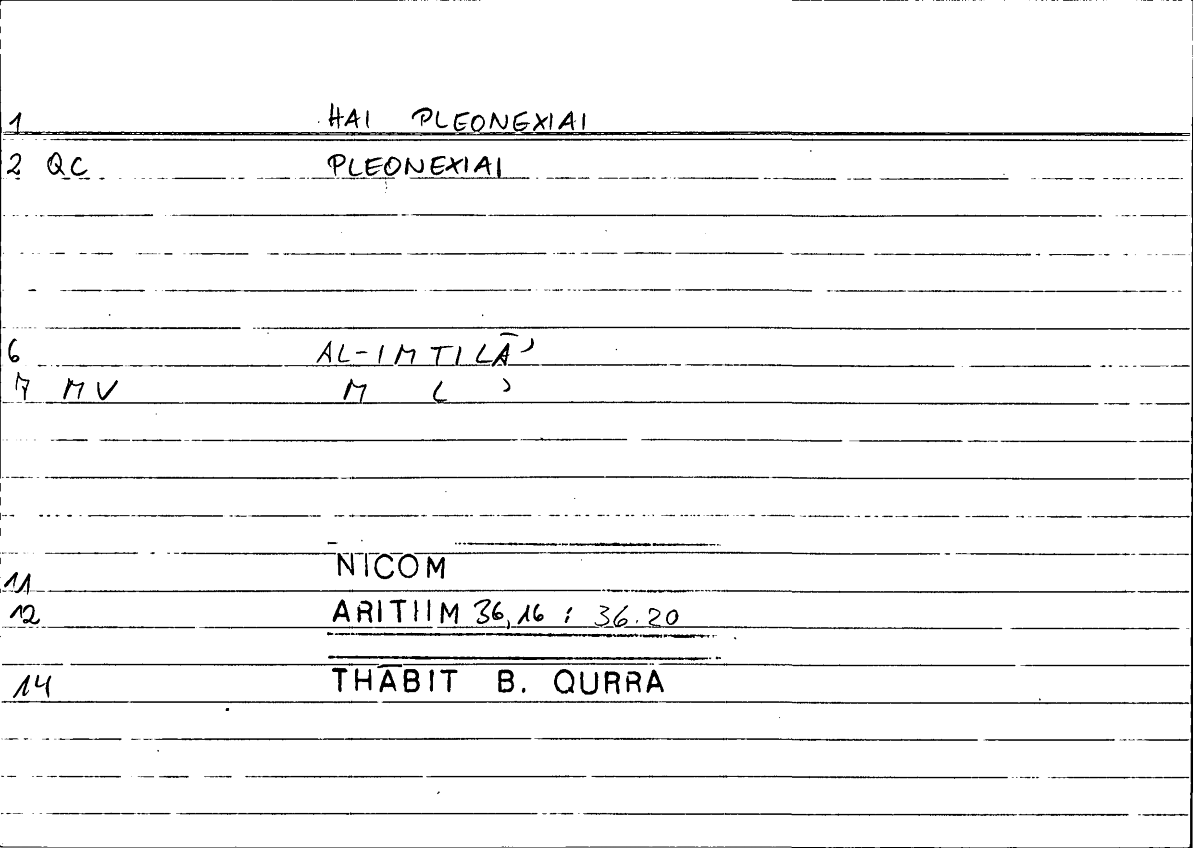 1 HAI PLEONEXIAI
2 QC PLEONEXIAI
6 AL-IMTILĀʾ
7 MV M L ʾ
NICOM
11
12 ARITHM 36,16 ; 36.20
14 THĀBIT B. QURRA